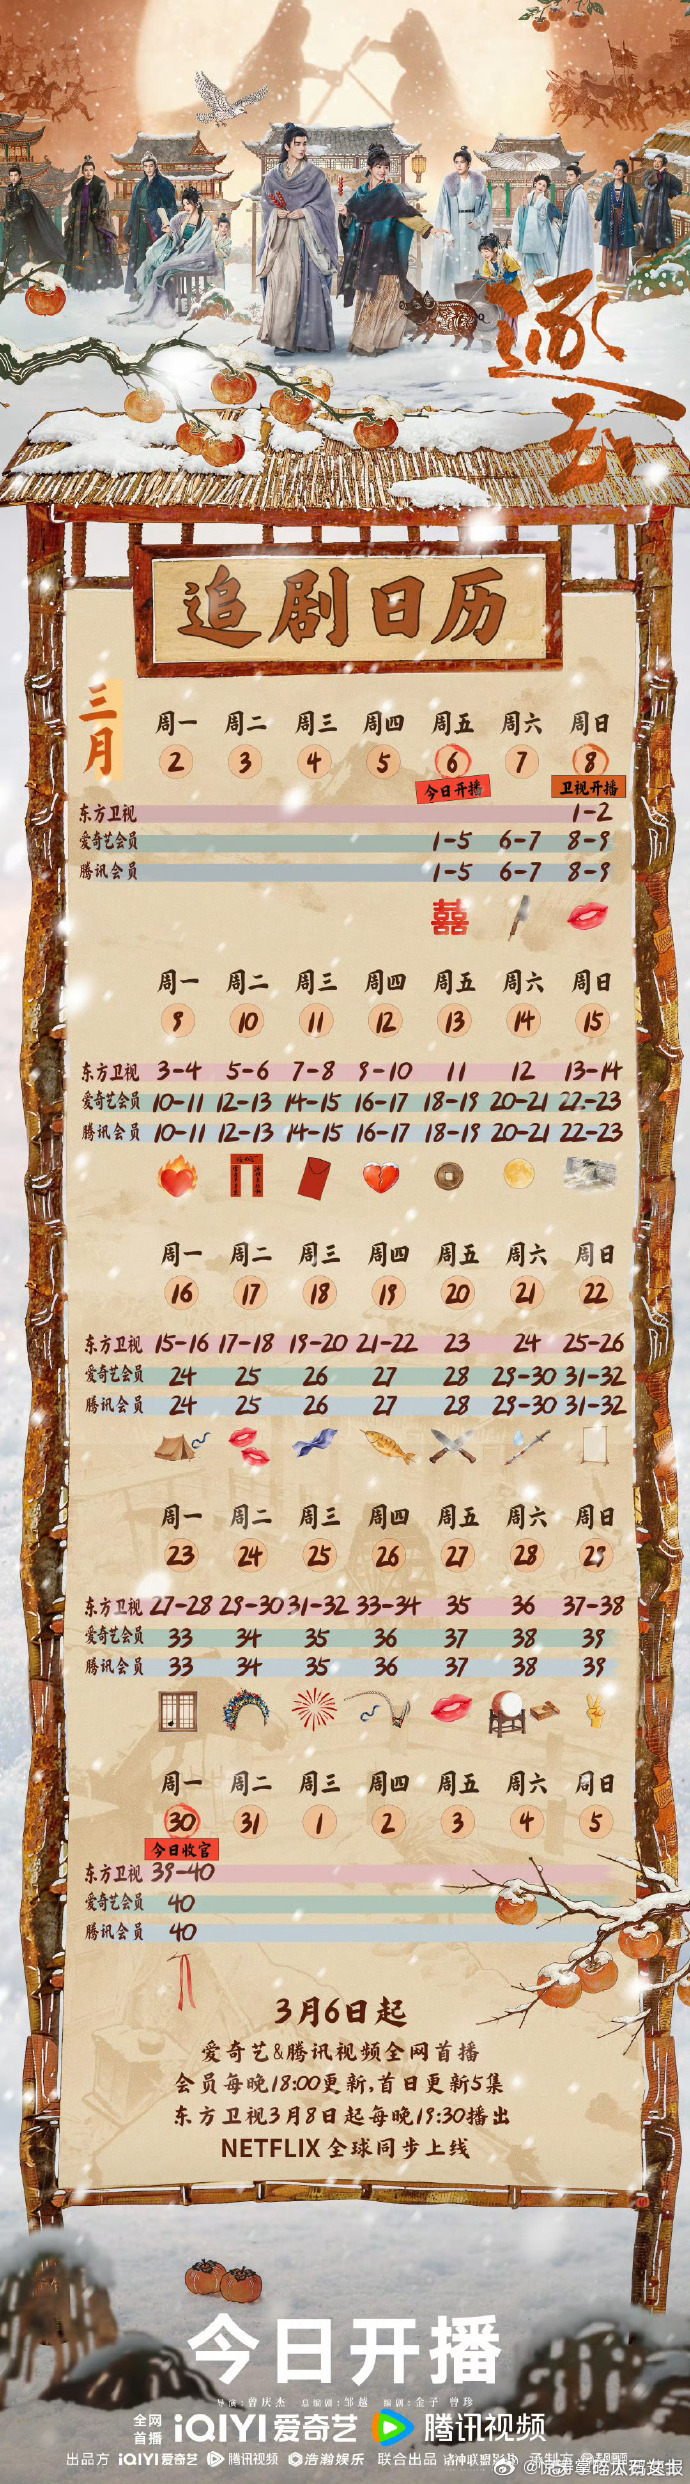 逐玉
追剧日历
三月
周一 周二 周三 周四 周五 周六 周日
2 3 4 5 6 7 8
今日开播 卫视开播
东方卫视 1-2
爱奇艺会员 1-5 6-7 8-9
腾讯会员 1-5 6-7 8-9
囍
周一 周二 周三 周四 周五 周六 周日
9 10 11 12 13 14 15
东方卫视 3-4 5-6 7-8 9-10 11 12 13-14
爱奇艺会员 10-11 12-13 14-15 16-17 18-19 20-21 22-23
腾讯会员 10-11 12-13 14-15 16-17 18-19 20-21 22-23
周一 周二 周三 周四 周五 周六 周日
16 17 18 19 20 21 22
东方卫视 15-16 17-18 19-20 21-22 23 24 25-26
爱奇艺会员 24 25 26 27 28 29-30 31-32
腾讯会员 24 25 26 27 28 29-30 31-32
周一 周二 周三 周四 周五 周六 周日
23 24 25 26 27 28 29
东方卫视 27-28 29-30 31-32 33-34 35 36 37-38
爱奇艺会员 33 34 35 36 37 38 39
腾讯会员 33 34 35 36 37 38 39
周一 周二 周三 周四 周五 周六 周日
30 31 1 2 3 4 5
今日收官
东方卫视 39-40
爱奇艺会员 40
腾讯会员 40
3月6日起
爱奇艺&腾讯视频全网首播
会员每晚18:00更新,首日更新5集
东方卫视3月8日起每晚19:30播出
NETFLIX 全球同步上线
今日开播
导演:曾庆杰 总编剧:邹越 编剧:金子 曾珍
全网首播 iQIYI 爱奇艺 腾讯视频
出品方 iQIYI 爱奇艺 腾讯视频 浩瀚娱乐 联合出品 诸神联盟影业 承制方